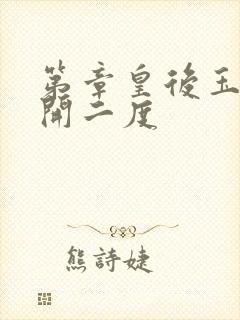 第章皇後玉
開二度
熊詩婕